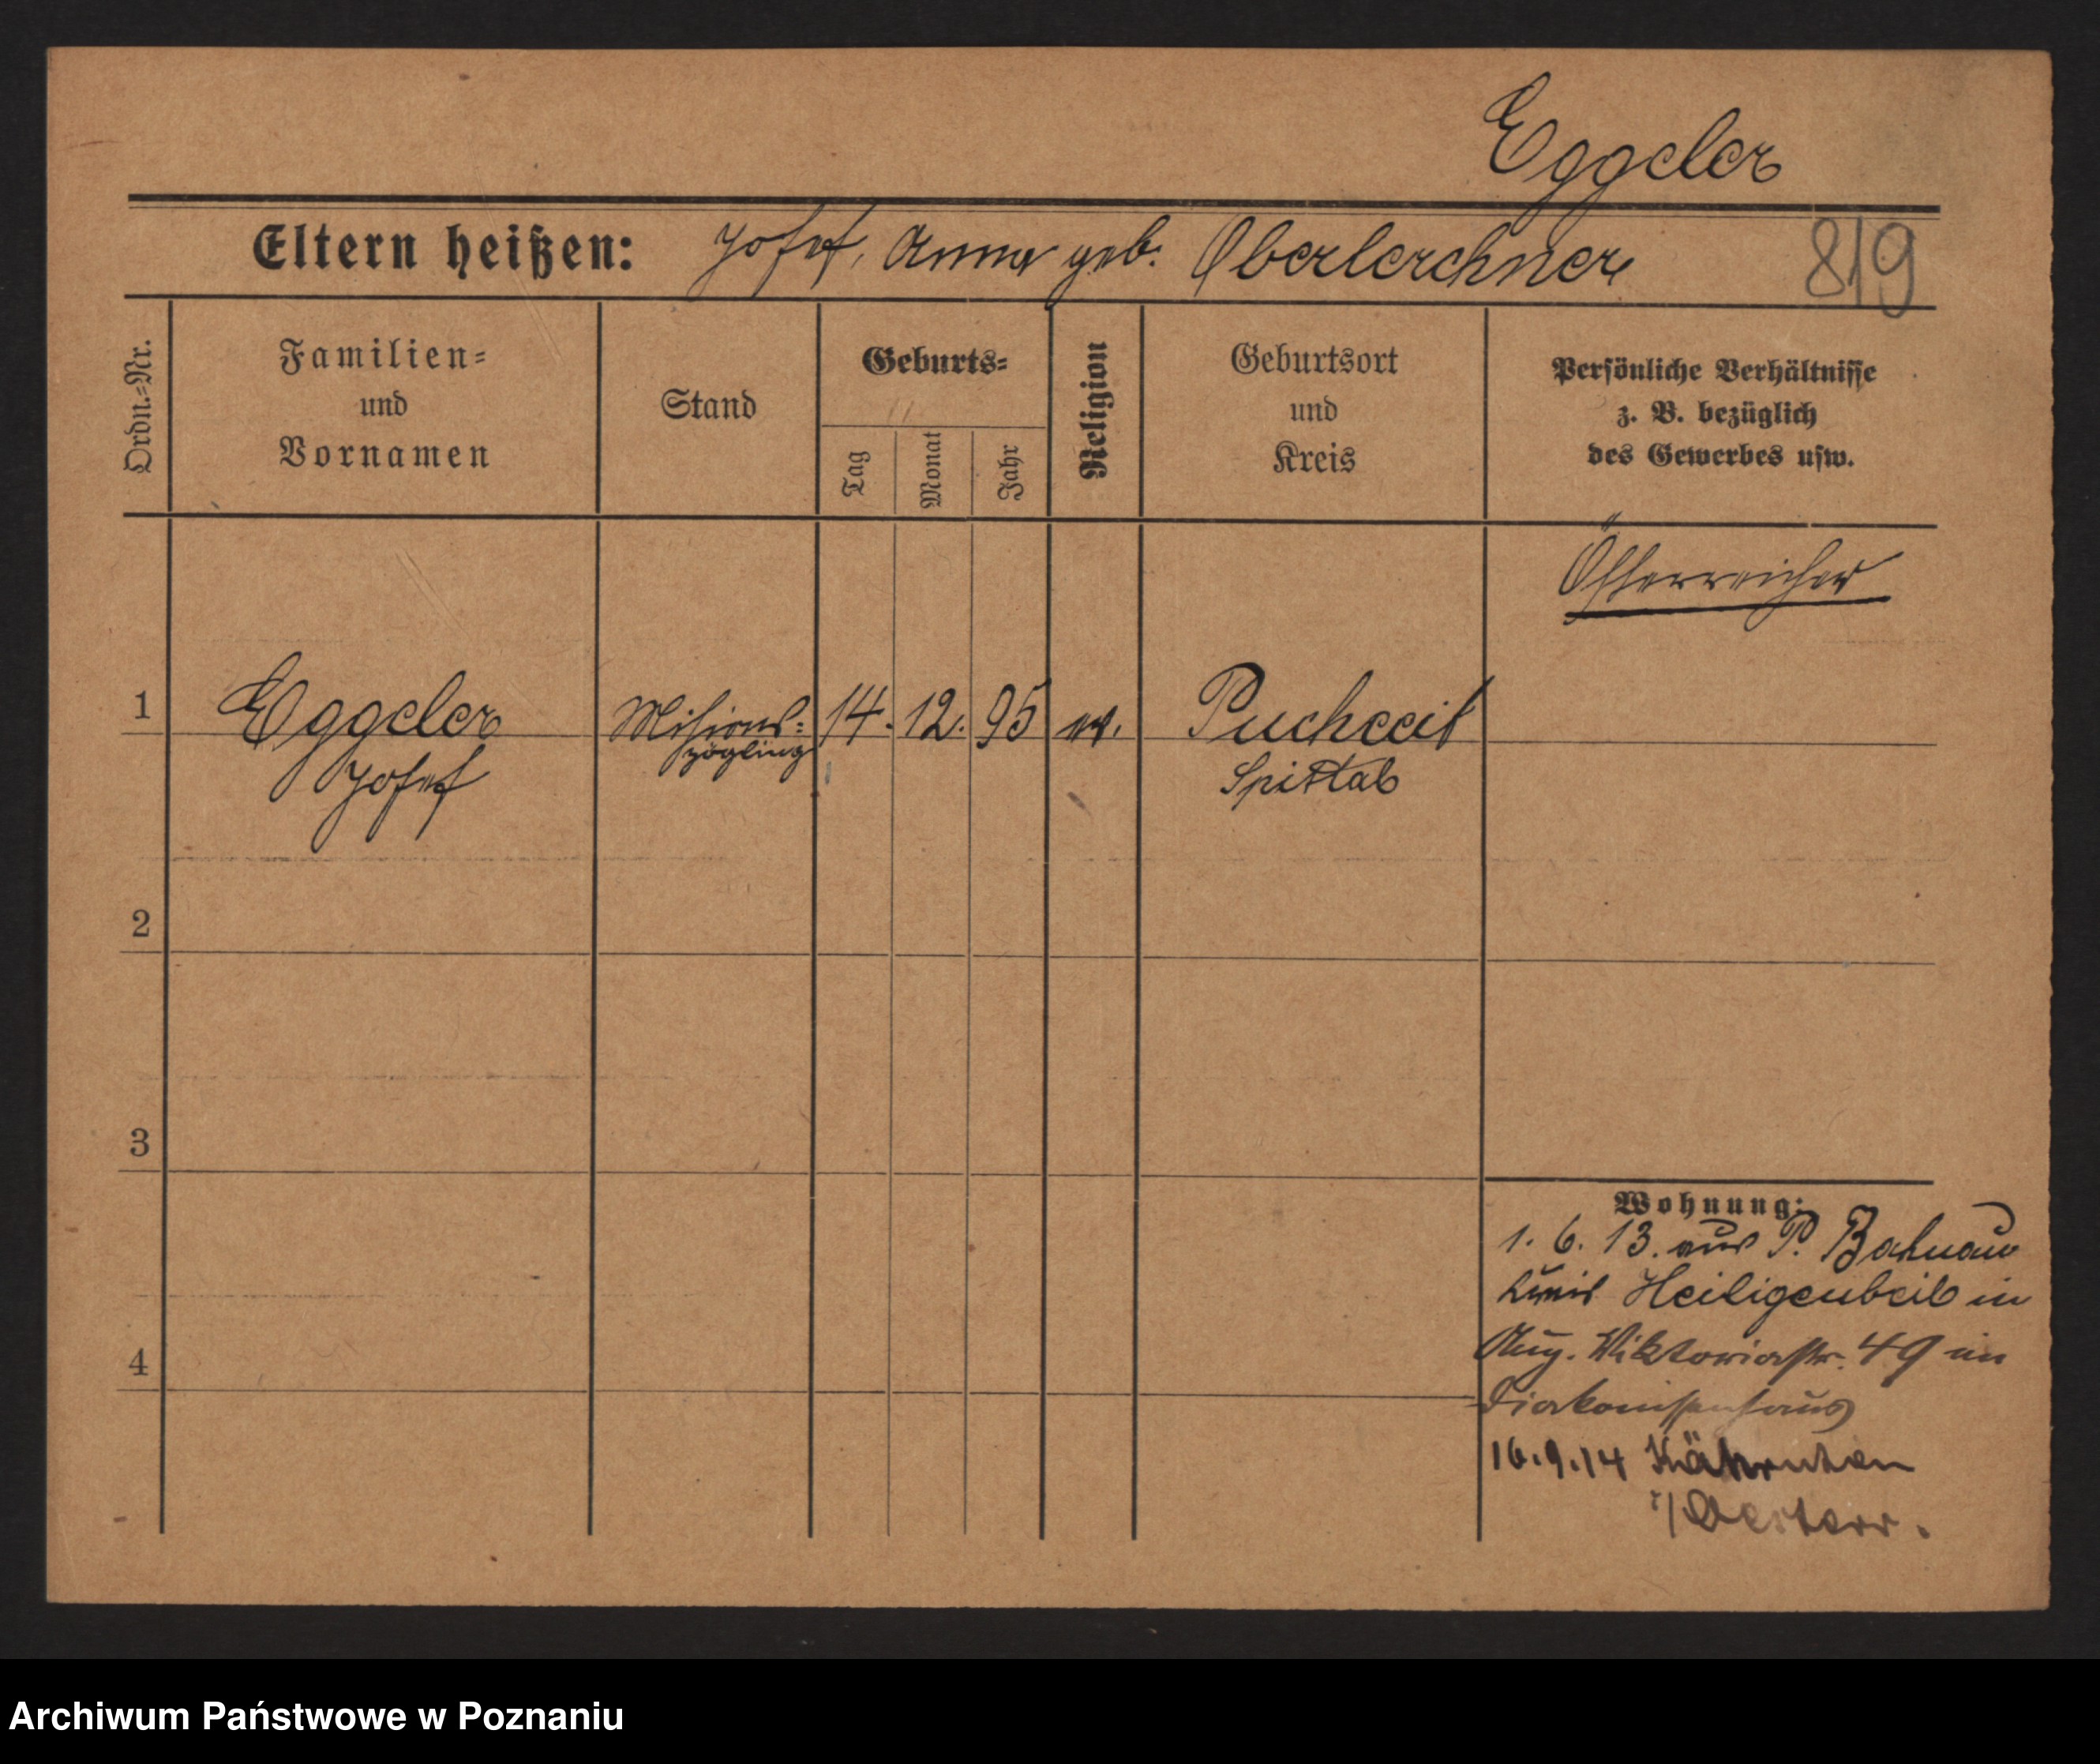 Eggeler
Eltern heißen: Josef, Anna geb. Oberlerchner
819
Ordn.=Nr.
Familien=
und
Vornamen
Stand
Geburts=
Tag
Monat
Jahr
Religion
Geburtsort
und
Kreis
Persönliche Verhältnisse
z. B. bezüglich
des Gewerbes usw.
Österreicher
1 Eggeler Misions= 14. 12. 95 ev.
zögling
Josef
Spittal
2
3
4
Wohnung:
1. 6. 13. aus P. Bahnau
Kreis Heiligenbeil in
Aug. Viktoriastr. 49 im
Diakonissenhaus
16.9.14 Kährnten
i/Oesterr.